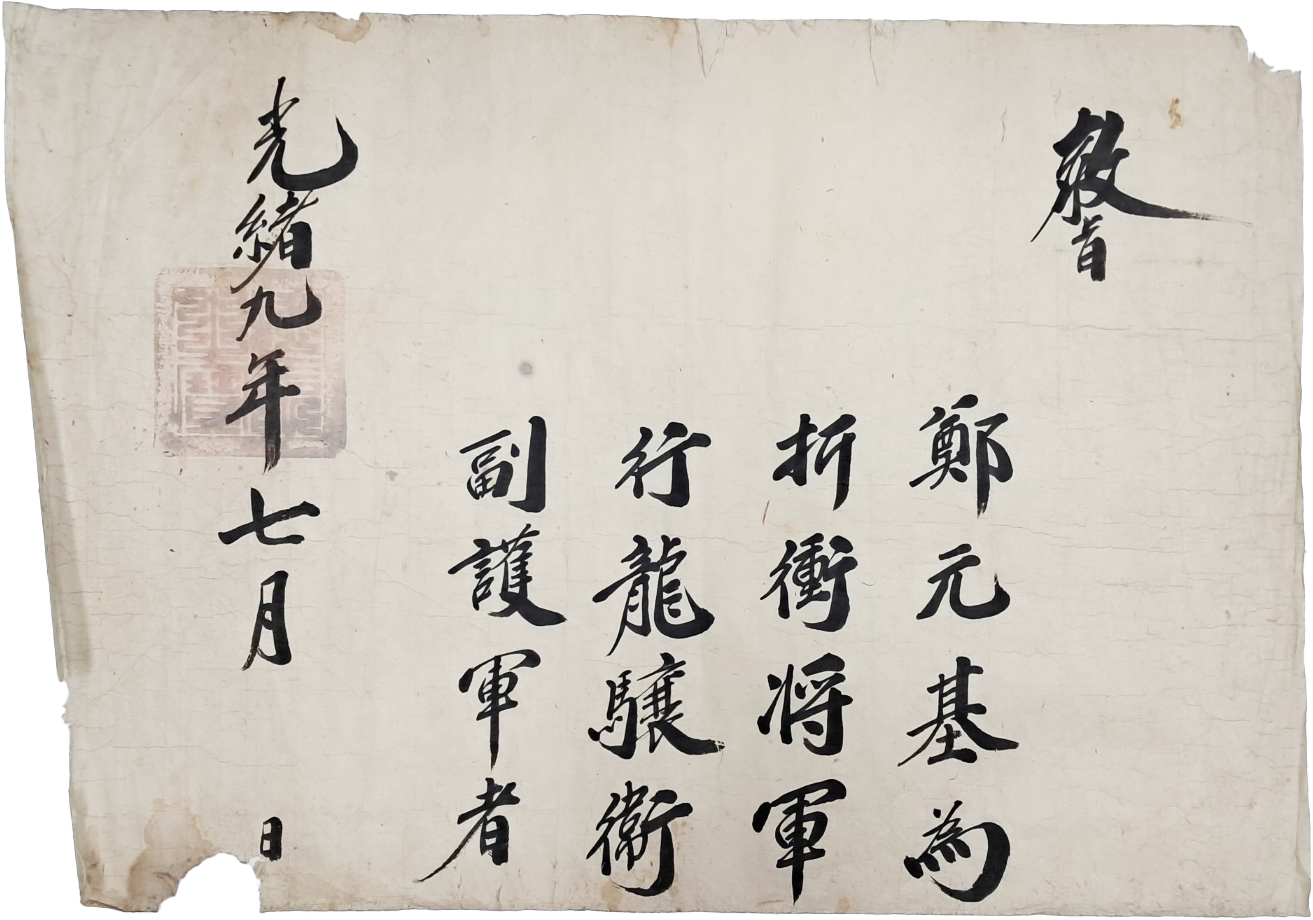 敎旨
鄭元基為
折衝将軍
行龍驤衛
副護軍者
光緒九年七月 日